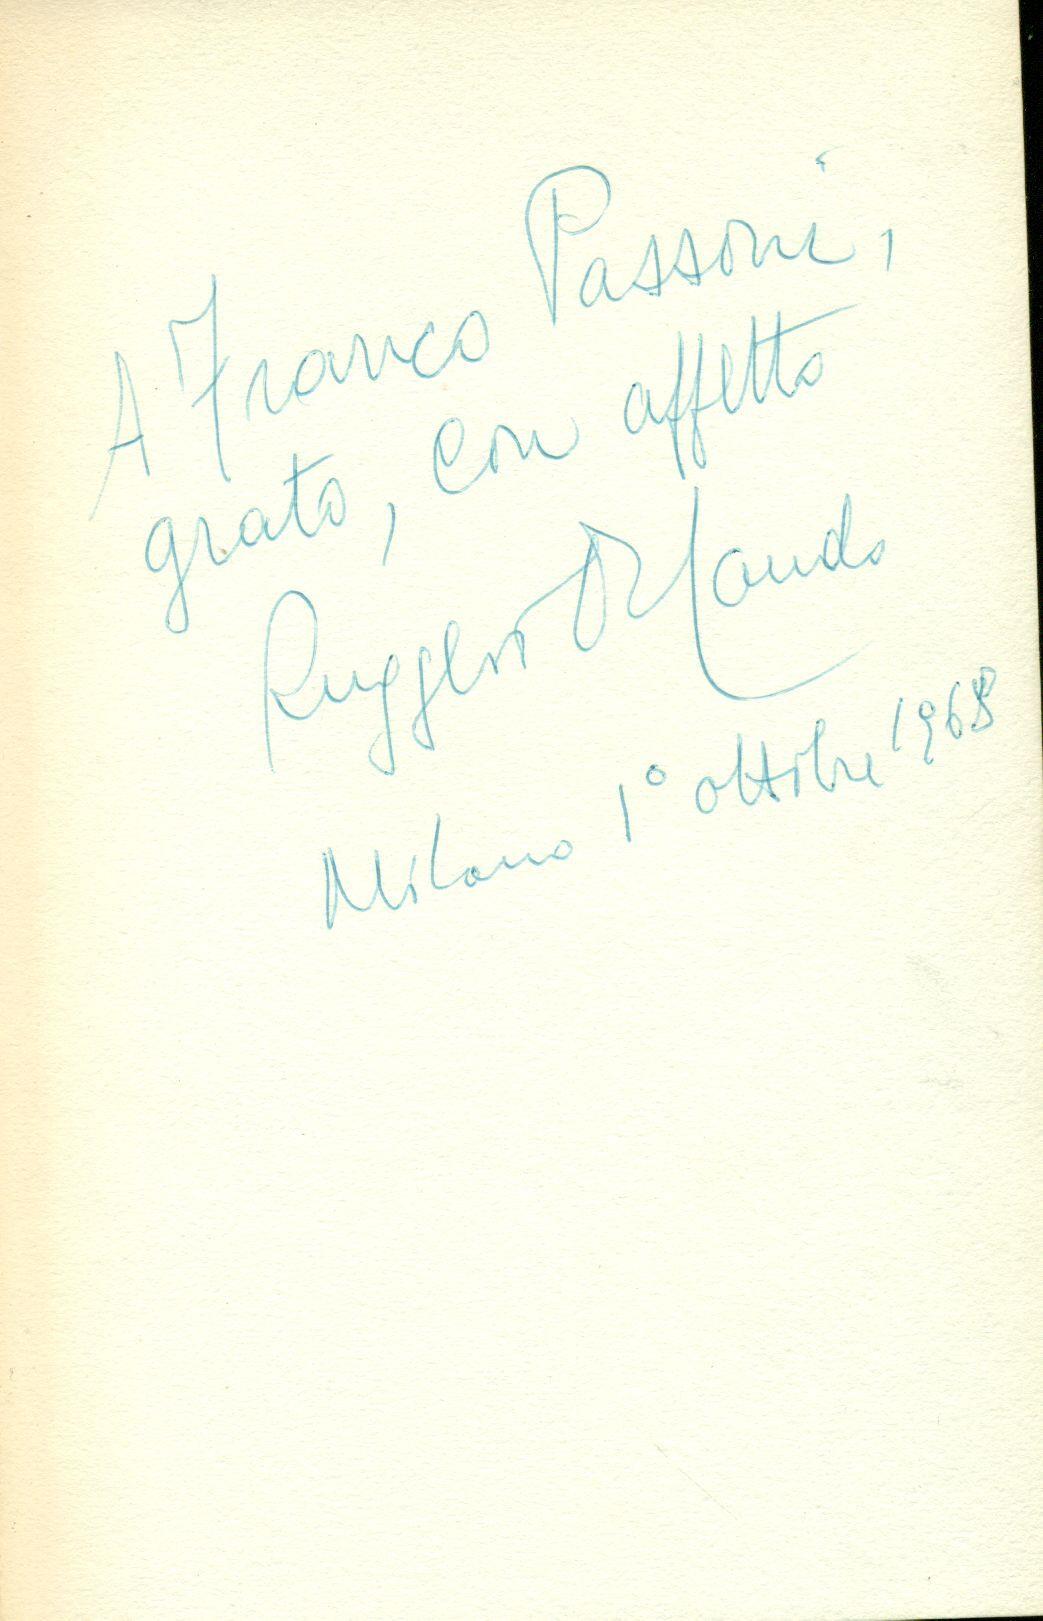 A Franco Passoni,
grato, con affetto
Ruggero Orlando
Milano 1° ottobre 1968